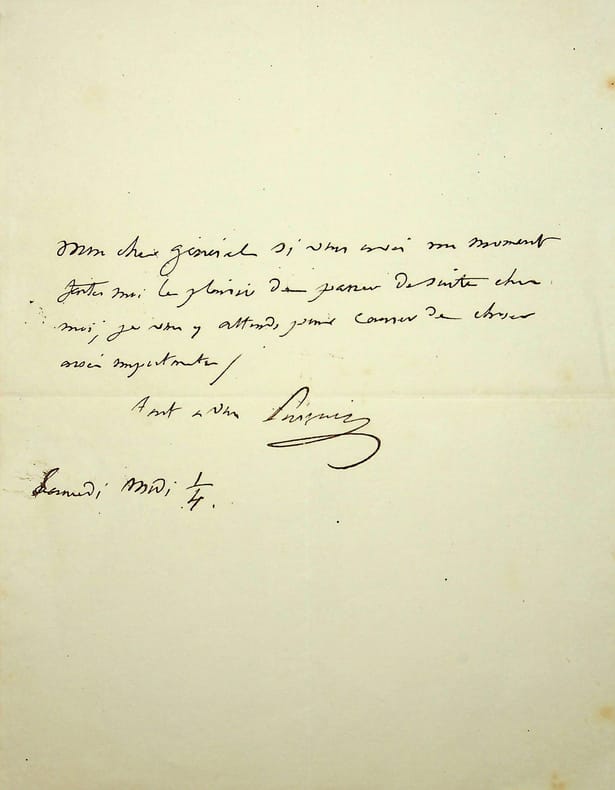 mon cher général si vous avez un moment
faites moi le plaisir de passer de suite chez
moi, je vous y attends pour causer de choses
assez importantes
tout à vous
Samedi midi 1/4.